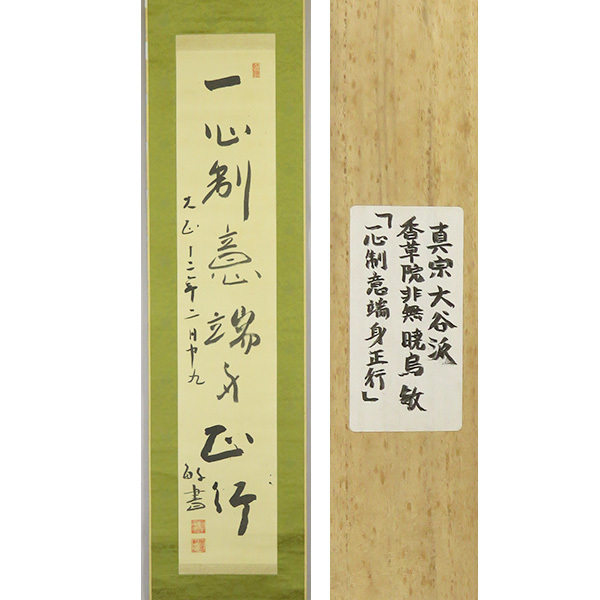 一心制意端身正行
大正十二年二月廿九
敏書
真宗大谷派
香草院非無暁烏敏
「一心制意端身正行」